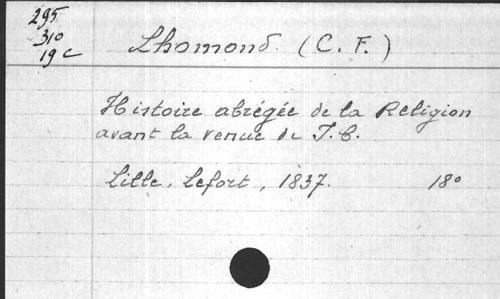 295
310
19 c
Lhomond. (C. F.)
Histoire abrégée de la Religion
avant la venue de J. C.
Lille. Lefort, 1837. 18°